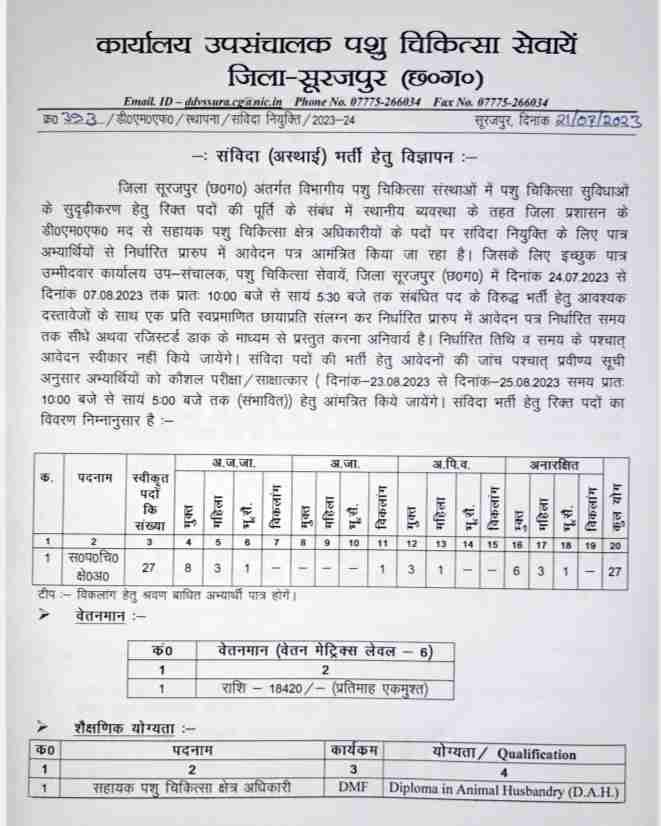 कार्यालय उपसंचालक पशु चिकित्सा सेवायें
जिला–सूरजपुर (छ०ग०)
Email. ID – ddvssura.cg@nic.in Phone No. 07775-266034 Fax No. 07775-266034
क्र० 393 /डी०एम०एफ०/स्थापना/संविदा नियुक्ति/2023–24 सूरजपुर, दिनांक 21/07/2023
–: संविदा (अस्थाई) भर्ती हेतु विज्ञापन :–
जिला सूरजपुर (छ०ग०) अंतर्गत विभागीय पशु चिकित्सा संस्थाओं में पशु चिकित्सा सुविधाओं
के सुदृढ़ीकरण हेतु रिक्त पदों की पूर्ति के संबंध में स्थानीय व्यवस्था के तहत जिला प्रशासन के
डी०एम०एफ० मद से सहायक पशु चिकित्सा क्षेत्र अधिकारीयों के पदों पर संविदा नियुक्ति के लिए पात्र
अभ्यार्थियों से निर्धारित प्रारुप में आवेदन पत्र आमंत्रित किया जा रहा है। जिसके लिए इच्छुक पात्र
उम्मीदवार कार्यालय उप–संचालक, पशु चिकित्सा सेवायें, जिला सूरजपुर (छ०ग०) में दिनांक 24.07.2023 से
दिनांक 07.08.2023 तक प्रातः 10:00 बजे से सायं 5:30 बजे तक संबंधित पद के विरुद्ध भर्ती हेतु आवश्यक
दस्तावेजों के साथ एक प्रति स्वप्रमाणित छायाप्रति संलग्न कर निर्धारित प्रारुप में आवेदन पत्र निर्धारित समय
तक सीधे अथवा रजिस्टर्ड डाक के माध्यम से प्रस्तुत करना अनिवार्य है। निर्धारित तिथि व समय के पश्चात्
आवेदन स्वीकार नहीं किये जायेगे। संविदा पदों की भर्ती हेतु आवेदनों की जांच पश्चात् प्रवीण्य सूची
अनुसार अभ्यार्थियों को कौशल परीक्षा/साक्षात्कार ( दिनांक–23.08.2023 से दिनांक–25.08.2023 समय प्रातः
10:00 बजे से सायं 5:00 बजे तक (संभावित)) हेतु आंमत्रित किये जायेंगे। संविदा भर्ती हेतु रिक्त पदों का
विवरण निम्नानुसार है :–
क. पदनाम स्वीकृत पदों कि संख्या अ.ज.जा. अ.जा. अ.पि.व. अनारक्षित कुल योग
मुक्त महिला भू.सै. विकलांग मुक्त महिला भू.सै. विकलांग मुक्त महिला भू.सै. विकलांग मुक्त महिला भू.सै. विकलांग
1 2 3 4 5 6 7 8 9 10 11 12 13 14 15 16 17 18 19 20
1 स०प०चि० क्षे०अ० 27 8 3 1 – – – – 1 3 1 – – 6 3 1 – 27
टीप :– विकलांग हेतु श्रवण बाधित अभ्यार्थी पात्र होगें।
➢ वेतनमान :–
कं० वेतनमान (वेतन मेट्रिक्स लेवल – 6)
1 2
1 राशि – 18420/– (प्रतिमाह एकमुश्त)
➢ शैक्षणिक योग्यता :–
क० पदनाम कार्यकम योग्यता/ Qualification
1 2 3 4
1 सहायक पशु चिकित्सा क्षेत्र अधिकारी DMF Diploma in Animal Husbandry (D.A.H.)